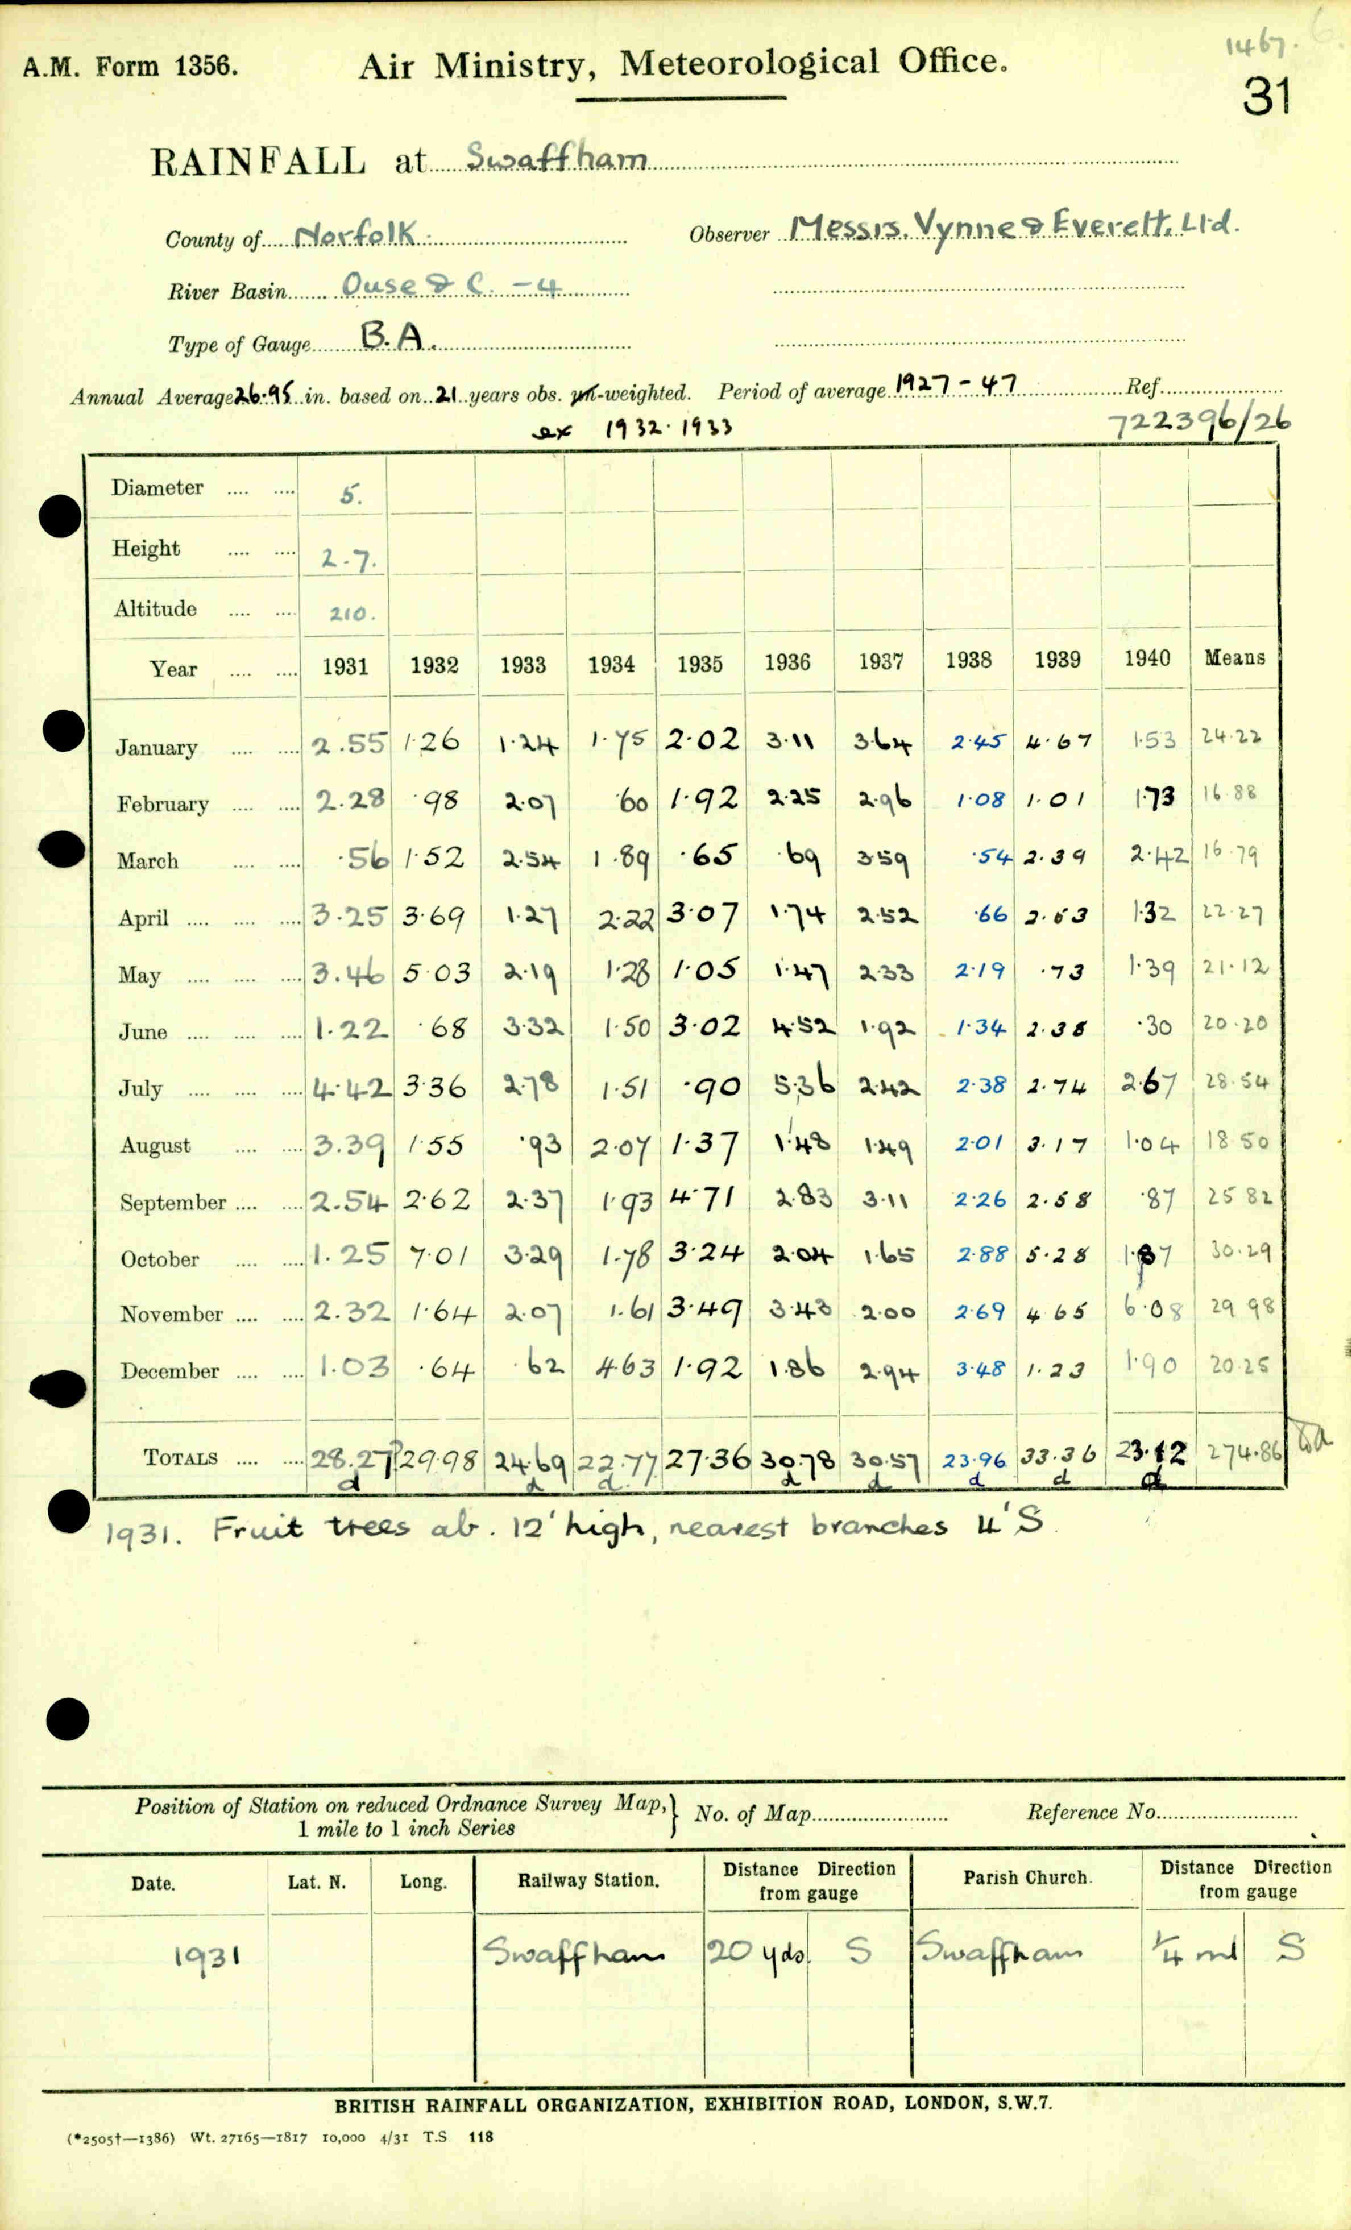 A.M. Form 1356. Air Ministry, Meteorological Office. 1467. 6.
31
RAINFALL at Swaffham
County of Norfolk. Observer Messrs. Vynne & Everett. Ltd.
River Basin Ouse & C. - 4
Type of Gauge B.A.
Annual Average 26.95 in. based on 21 years obs. un-weighted. Period of average 1927-47 Ref.
ex 1932. 1933 722396/26
Diameter .... .... 5.
Height .... .... 2.7.
Altitude .... .... 210.
Year .... .... 1931 1932 1933 1934 1935 1936 1937 1938 1939 1940 Means
January .... .... 2.55 1.26 1.24 1.75 2.02 3.11 3.64 2.45 4.67 1.53 24.22
February .... .... 2.28 .98 2.07 .60 1.92 2.25 2.96 1.08 1.01 1.73 16.88
March .... .... .56 1.52 2.54 1.89 .65 .69 3.59 .54 2.39 2.42 16.79
April .... .... .... 3.25 3.69 1.27 2.22 3.07 1.74 2.52 .66 2.53 1.32 22.27
May .... .... .... 3.46 5.03 2.19 1.28 1.05 1.47 2.33 2.19 .73 1.39 21.12
June .... .... .... 1.22 .68 3.32 1.50 3.02 4.52 1.92 1.34 2.38 .30 20.20
July .... .... .... 4.42 3.36 2.78 1.51 .90 5.36 2.42 2.38 2.74 2.67 28.54
August .... .... 3.39 1.55 .93 2.07 1.37 1.48 1.49 2.01 3.17 1.04 18.50
September .... .... 2.54 2.62 2.37 1.93 4.71 2.83 3.11 2.26 2.58 .87 25.82
October .... .... 1.25 7.01 3.29 1.78 3.24 2.04 1.65 2.88 5.28 1.87 30.29
November .... .... 2.32 1.64 2.07 1.61 3.49 3.43 2.00 2.69 4.65 6.08 29.98
December .... .... 1.03 .64 .62 4.63 1.92 1.86 2.94 3.48 1.23 1.90 20.25
TOTALS .... .... 28.27? 29.98 24.69 22.77 27.36 30.78 30.57 23.96 33.36 23.12 274.86
d d d d d d d d
1931. Fruit trees ab. 12' high, nearest branches 4' S.
Position of Station on reduced Ordnance Survey Map, } No. of Map Reference No.
1 mile to 1 inch Series
Date. Lat. N. Long. Railway Station. Distance Direction from gauge Parish Church. Distance Direction from gauge
1931 Swaffham 20 yds. S Swaffham 1/4 ml S
BRITISH RAINFALL ORGANIZATION, EXHIBITION ROAD, LONDON, S.W.7.
(*2505†—1386) Wt. 27165—1817 10,000 4/31 T.S 118